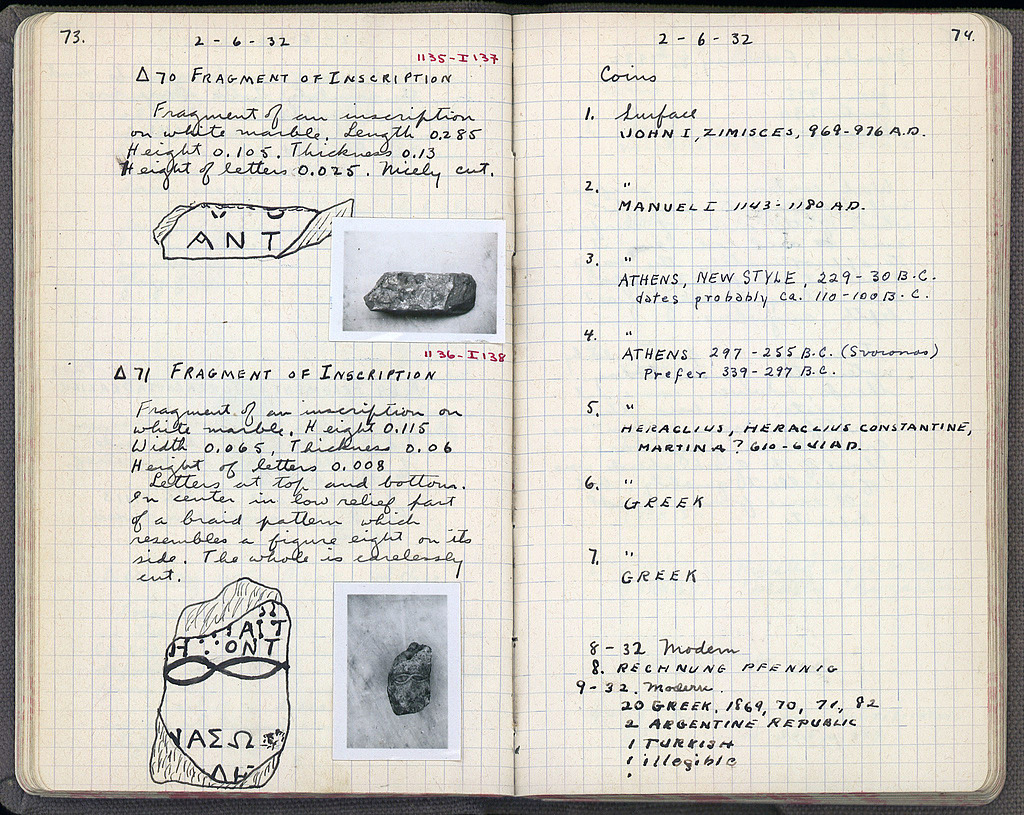 73.
2 - 6 - 32
1135 - I 137
Δ 70 FRAGMENT OF INSCRIPTION
Fragment of an inscription
on white marble. Length 0.285
Height 0.105. Thickness 0.13
Height of letters 0.025. Nicely cut.
ΑΝΤ
1136 - I 138
Δ 71 FRAGMENT OF INSCRIPTION
Fragment of an inscription on
white marble. Height 0.115
Width 0.065, Thickness 0.06
Height of letters 0.008
Letters at top and bottom.
In center in low relief part
of a braid pattern which
resembles a figure eight on its
side. The whole is carelessly
cut.
ΟΝΤ
ΑΣΩ
74.
2 - 6 - 32
Coins
1. Surface
JOHN I, ZIMISCES, 969-976 A.D.
2. "
MANUEL I 1143-1180 A.D.
3. "
ATHENS, NEW STYLE, 229-30 B.C.
dates probably ca. 110-100 B.C.
4. "
ATHENS 297-255 B.C. (Svoronos)
Prefer 339-297 B.C.
5. "
HERACLIUS, HERACLIUS CONSTANTINE,
MARTINA? 610-641 A.D.
6. "
GREEK
7. "
GREEK
8-32 Modern
8. RECHNUNG PFENNIG
9-32. Modern.
20 GREEK, 1869, 70, 71, 82
2 ARGENTINE REPUBLIC
1 TURKISH
1 illegible